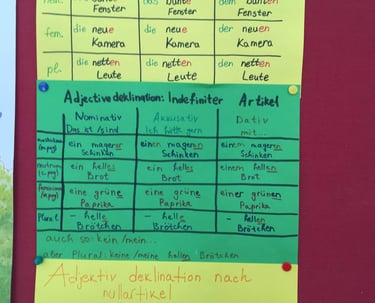 neut. bunte das bunte dem bunten
Fenster Fenster Fenster
fem. die neue die neue der neuen
Kamera Kamera Kamera
pl. die netten die netten den netten
Leute Leute Leute
Adjectivedeklination: Indefiniter Artikel
Nominativ Akkusativ Dativ
Das ist/sind Ich hätt gern mit...
ein magerer einen mageren einem mageren
Schinken Schinken Schinken
ein helles ein helles einem hellen
Brot Brot Brot
eine grüne eine grüne einer grünen
Paprika Paprika Paprika
Plural - helle - helle - hellen
Brötchen Brötchen Brötchen
auch so: kein/mein...
aber Plural: keine/meine hellen Brötchen
Adjektiv deklination nach
nullartikel